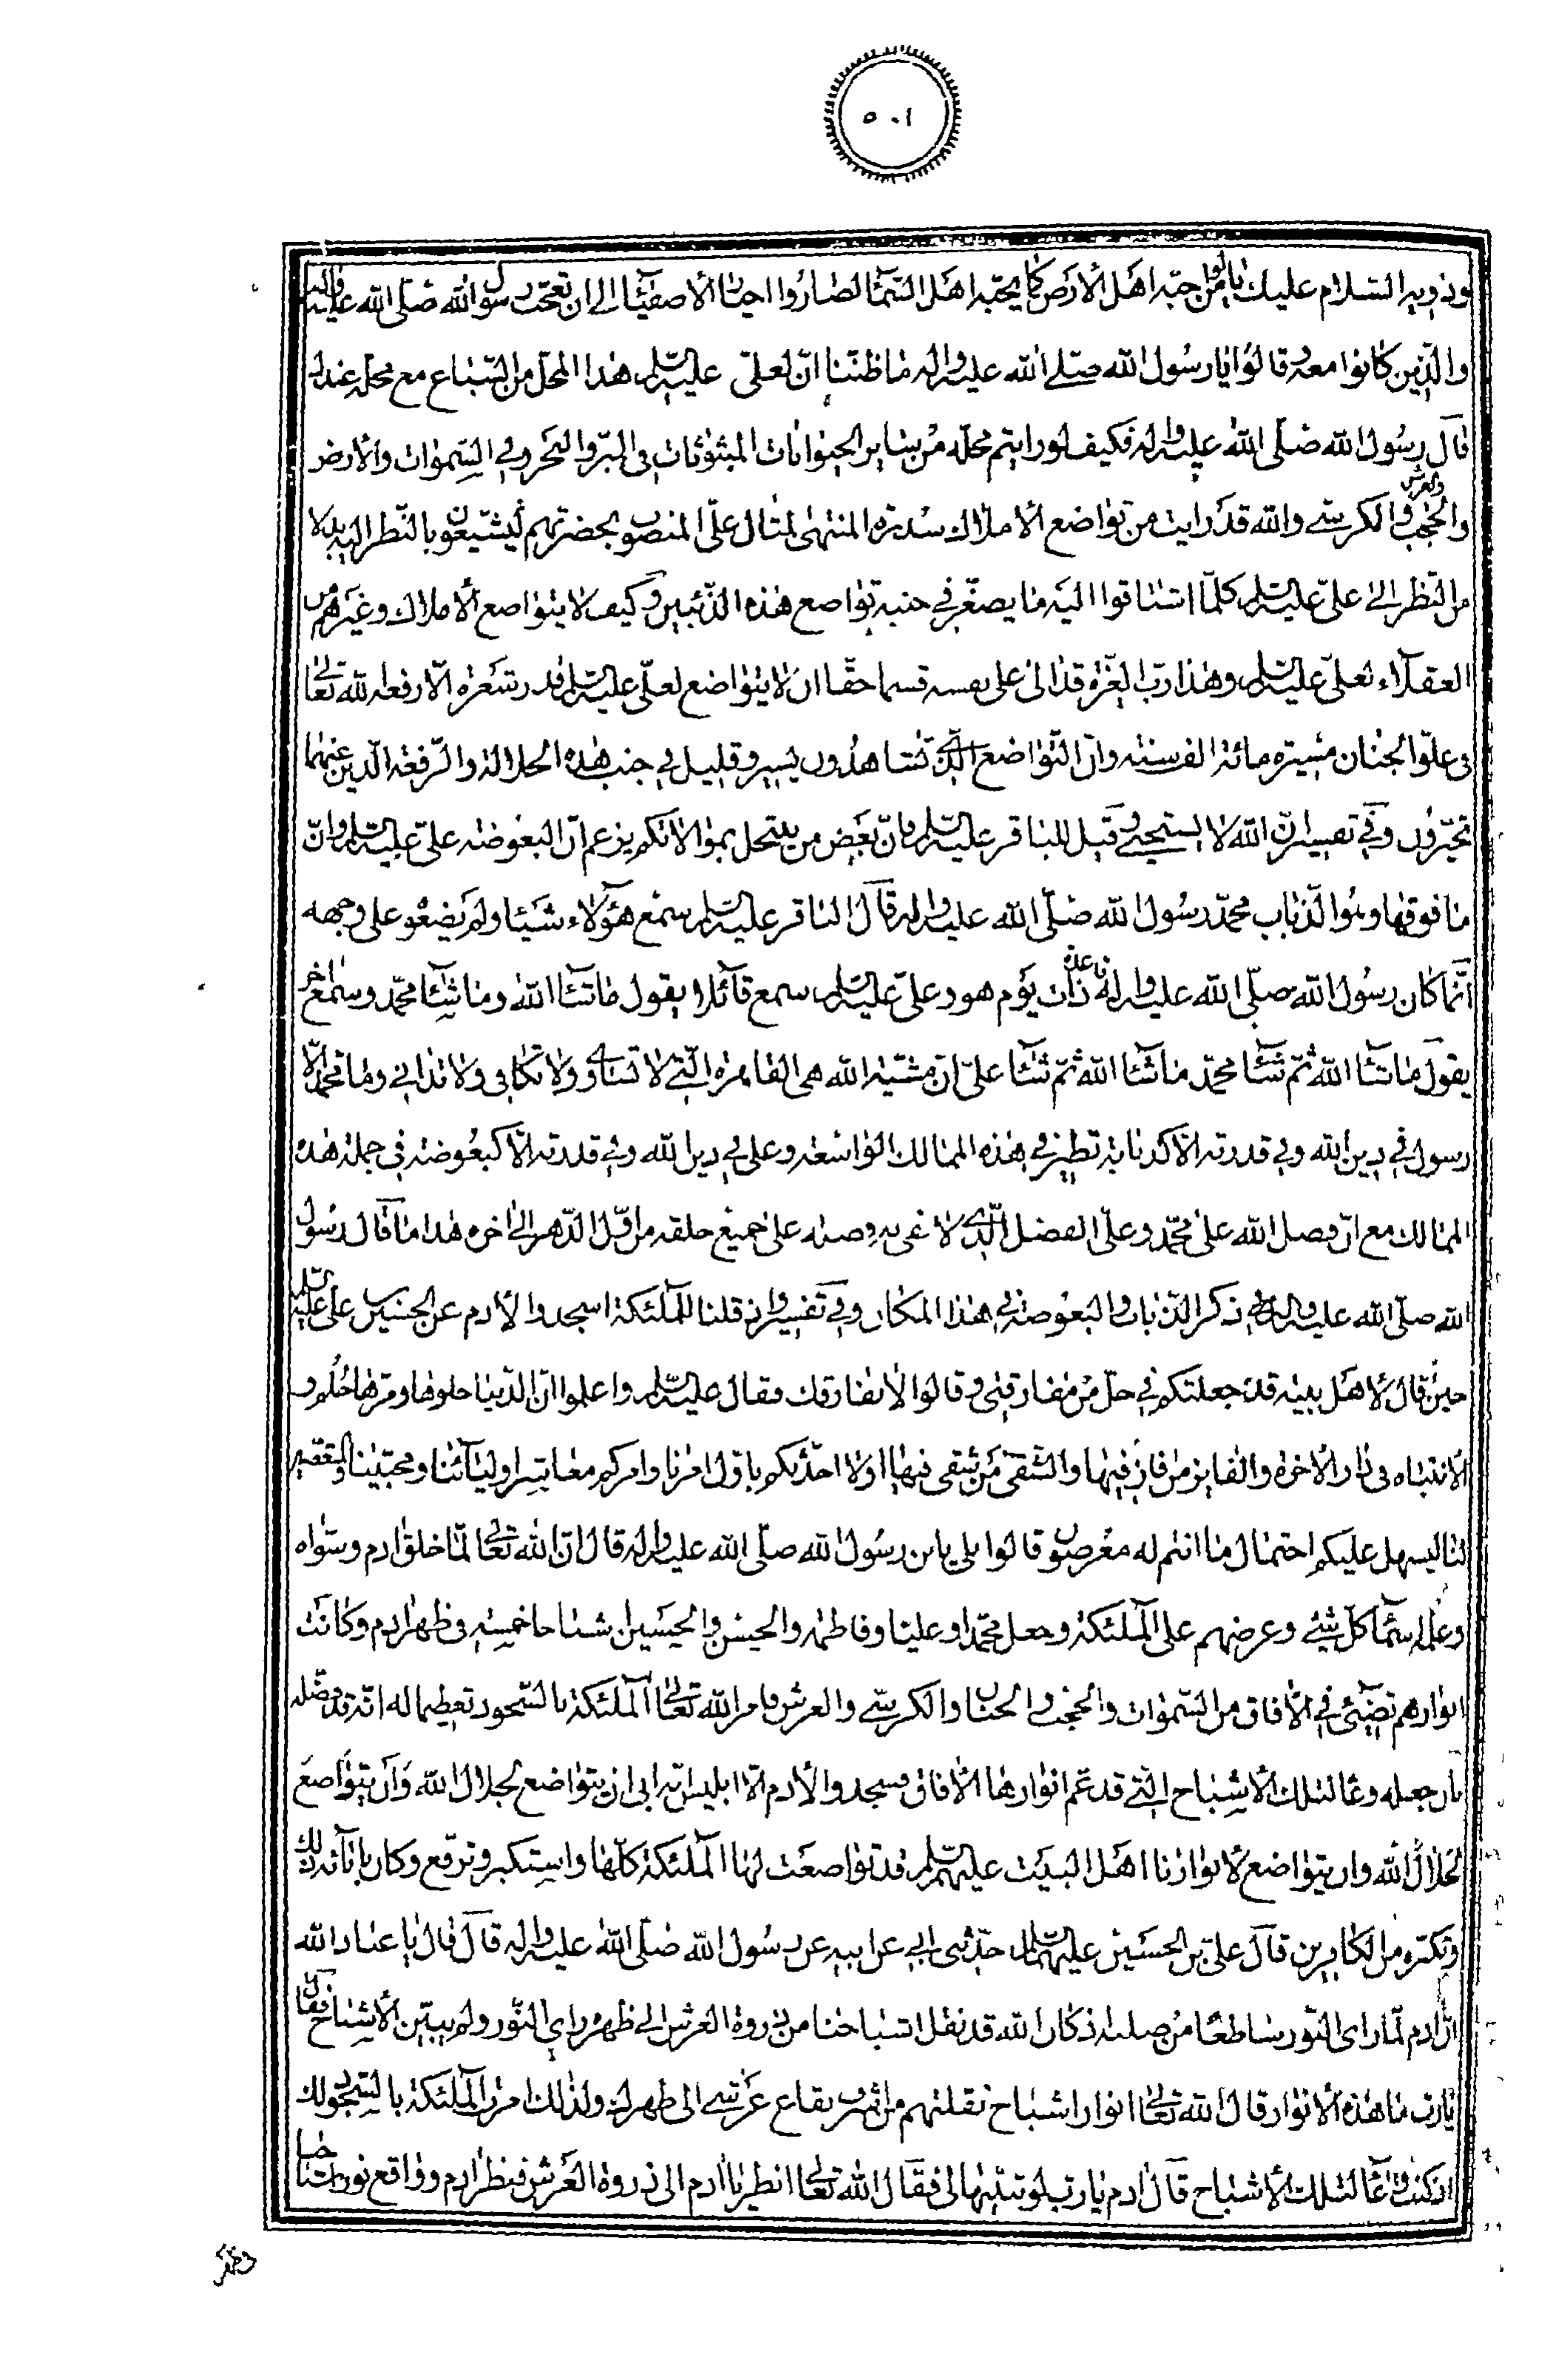 ٥٠١
وذويه السلام عليك يا من لو احبه اهل الارض كما يحبه اهل السماء لصاروا خيار الاصفياء الى ان تعجب رسول الله صلى الله عليه واله
والذين كانوا معه وقالوا يا رسول الله صلى الله عليه واله ما ظننا ان لعلى عليه السلم هذا المحل من السباع مع محله عندك
قال رسول الله صلى الله عليه واله فكيف لو رايتم محله من ساير الحيوانات المبثوثات فى البر والبحر وفى السموات والارض
والحجب والعرش والكرسى والله قد رايت من تواضع الاملاك سدرة المنتهى لمثال على المنصوب بحضرتهم ليشيعون بالنظر اليه بدلا
من النظر الى على عليه السلم كلما اشتاقوا اليه ما يصغر فى جنبه تواضع هذه الذئبين وكيف لا يتواضع الاملاك وغيرهم من
العقلاء لعلى عليه السلم وهذا رب العزة قد الى على نفسه قسما حقا ان لا يتواضع لعلى عليه السلم قدر شعرة الا رفعه الله تعالى
فى علو الجنان مسيرة مائة الف سنة وان التواضع الذى تشاهدون يسير وقليل فى جنب هذه الجلالة والرفعة الذين عنهما
تخبرون وفى تفسير ان الله لا يستحيى وقيل للباقر عليه السلم فان بعض من ينتحل بموالاتكم يزعم ان البعوضة على عليه السلم وان
ما فوقها وهو الذباب محمد رسول الله صلى الله عليه واله قال الباقر عليه السلم سمع هؤلاء شيئا ولم يضعو على وجهه
انما كان رسول الله صلى الله عليه واله قاعدة ذات يوم هو وعلى عليه السلم سمع قائلا يقول ما شاء الله وما شاء محمد وسمع اخر
يقول ما شاء الله ثم شاء محمد ما شاء الله ثم شاء على ان مشية الله هى القاهرة التى لا تساوى ولا تكافى ولا تدانى وما محمد الا
رسول فى دين الله وفى قدرته الا كذبابة تطير فى هذه الممالك الواسعة وعلى فى دين الله وفى قدرته الا كبعوضة فى جملة هذه
الممالك مع ان فضل الله على محمد وعلى الفضل الذى لا يفى به فضله على جميع خلقه من اول الدهر الى اخره هذا ما قال رسول
الله صلى الله عليه واله فى ذكر الذباب والبعوضة فى هذا المكان وفى تفسير واذ قلنا للملئكة اسجدوا لادم عن الحسين بن على عليه السلم
حين قال لاهل بيته قد جعلتكم فى حل من مفارقتى وقالوا لا نفارقك فقال عليه السلم واعلموا ان الدنيا حلوها ومرها حلم و
الانتباه فى دار الاخرة والفايز من فاز فيها والشقى من شقى فيها اولا احدثكم باول امرنا وامركم معاشر اوليائنا ومحبينا والمتعصبين
لنا ليسهل عليكم احتمال ما انتم له معرضون قالوا بلى يابن رسول الله صلى الله عليه واله قال ان الله تعالى لما خلق ادم وسواه
وعلمه اسماء كل شىء وعرضهم على الملئكة وجعل محمدا وعليا وفاطمة والحسن والحسين اشباحا خمسة فى ظهر ادم وكانت
انوارهم تضىء فى الافاق من السموات والحجب والجنان والكرسى والعرش فامر الله تعالى الملئكة بالسجود تعظيما له انه قد فضله
بان جعله وعاء لتلك الاشباح التى قد عم انوارها الافاق فسجدوا لادم الا ابليس انه ابى ان يتواضع لجلال الله وان يتواضع
لجلال الله وان يتواضع لانوارنا اهل البيت عليهم السلم قد تواضعت لها الملئكة كلها واستكبر وترفع وكان بابائه ذلك
وتكبره من الكافرين قال على بن الحسين عليهما السلام حدثنى ابى عن ابيه عن رسول الله صلى الله عليه واله قال قال يا عباد الله
ان ادم لما راى النور ساطعا من صلبه اذ كان الله قد نقل اشباحنا من ذروة العرش الى ظهره راى النور ولم يبين الاشباح فقال
يا رب ما هذه الانوار قال الله تعالى انوار اشباح نقلتهم من اشرف بقاع عرشى الى ظهرك ولذلك امرت الملئكة بالسجود لك
اذ كنت وعاء لتلك الاشباح قال ادم يا رب لو تبينها لى فقال الله تعالى انظر يا ادم الى ذروة العرش فنظر ادم وواقع نور اشباحنا